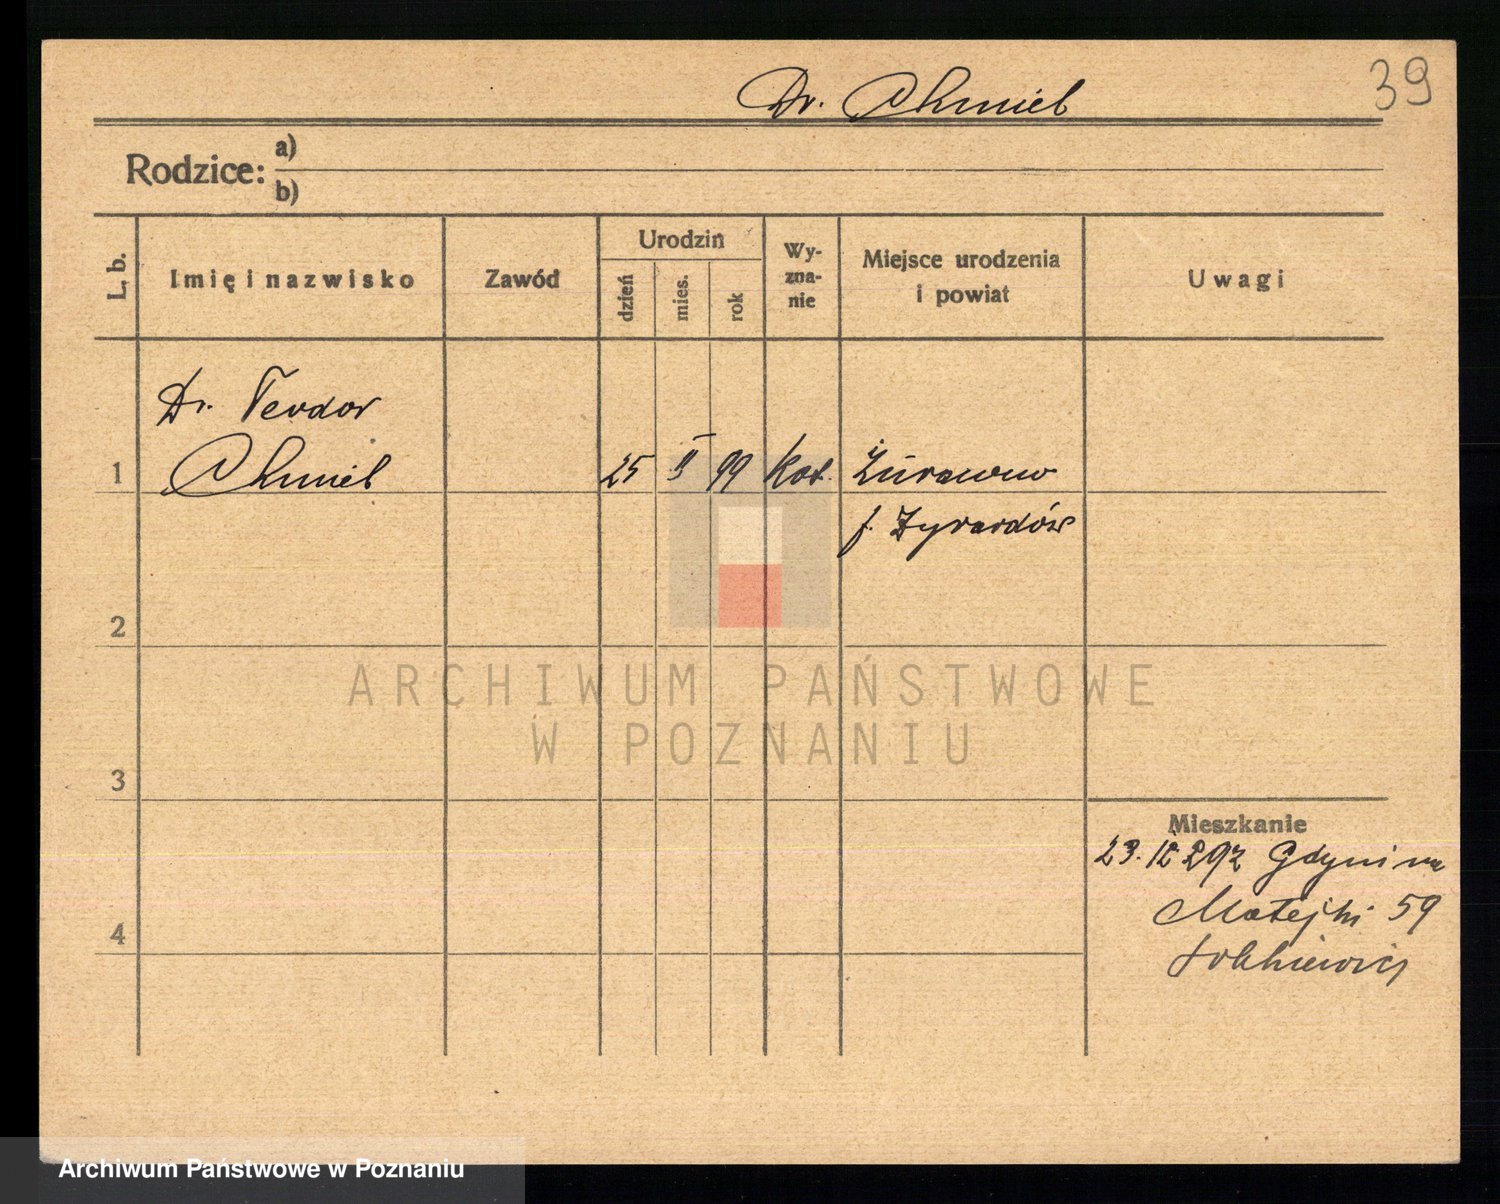 39
Dr. Chmiel
Rodzice: a)
b)
L. b.
Imię i nazwisko
Zawód
Urodzin
dzień
mies.
rok
Wy-
zna-
nie
Miejsce urodzenia
i powiat
Uwagi
Dr. Teodor
1 Chmiel 25 II 99 kat. Żurawno
f. Żyrardów
2
ARCHIWUM PAŃSTWOWE
W POZNANIU
3
Mieszkanie
23. IX Gdyni
Matejki 59
4
Archiwum Państwowe w Poznaniu